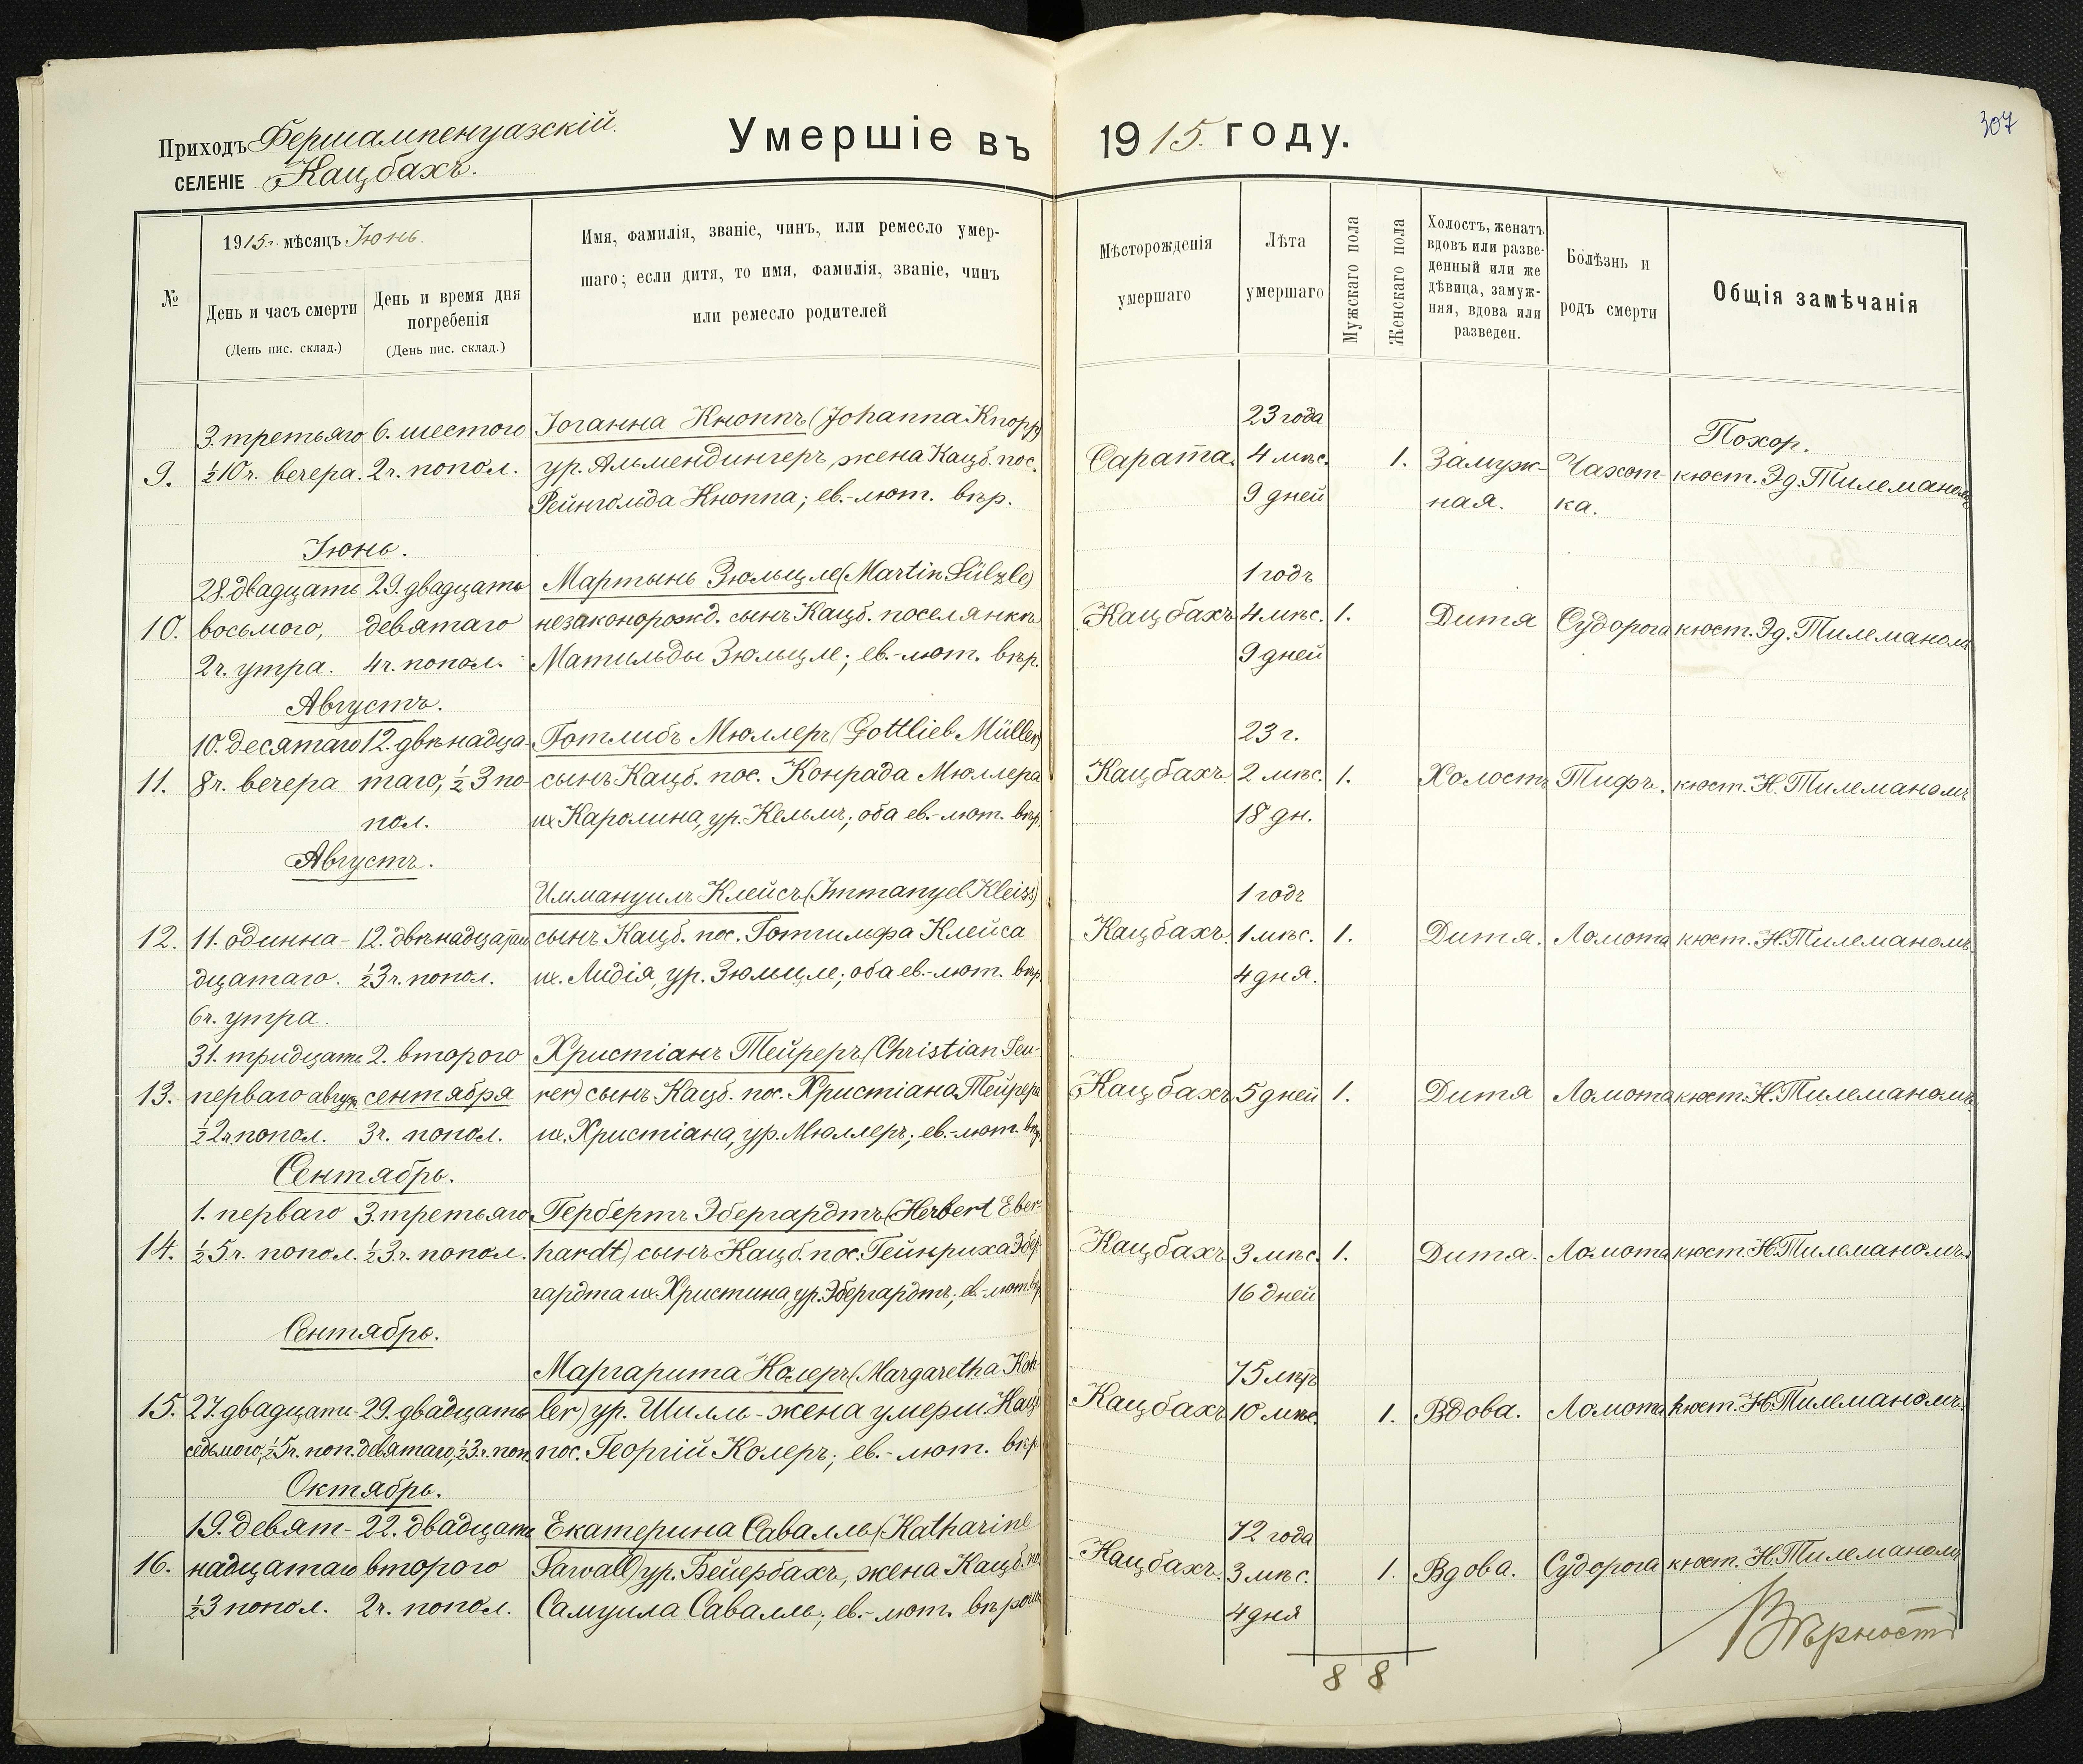 Приходъ Фершампенуазскій.
селеніе Кацбахъ.
Умершіе въ 1915. году.
307
№
1915 г. мѣсяцъ Іюнь.
День и часъ смерти
(День пис. склад.)
День и время дня
погребенія
(День пис. склад.)
Имя, фамилія, званіе, чинъ, или ремесло умер-
шаго; если дитя, то имя, фамилія, званіе, чинъ
или ремесло родителей
Мѣсторожденія
умершаго
Лѣта
умершаго
Мужскаго пола
Женскаго пола
Холостъ, женатъ
вдовъ или разве-
денный или же
дѣвица, замуж-
няя, вдова или
разведен.
Болѣзнь и
родъ смерти
Общія замѣчанія
9.
3. третьяго
½10 ч. вечера.
6. шестого
2 ч. попол.
Іоганна Кноппъ (Johanna Knopp)
ур. Альмендингеръ, жена Кацб. пос.
Рейнгольда Кноппа; ев.-лют. вѣр.
Сарата.
23 года
4 мѣс.
9 дней
1.
Замуж-
ная.
Чахот-
ка.
Похор.
кюст. Эд. Тилеманомъ
Іюнь.
10.
28. двадцать
восьмого,
2 ч. утра.
29. двадцать
девятаго
4 ч. попол.
Мартынъ Зюльцле (Martin Sülzle)
незаконорожд. сынъ Кацб. поселянки
Матильды Зюльцле; ев.-лют. вѣр.
Кацбахъ
1 годъ
4 мѣс.
9 дней
1.
Дитя
Судорога
кюст. Эд. Тилеманомъ
Августъ.
11.
10. десятаго
8 ч. вечера
12. двѣнадца-
таго, ½3 по-
пол.
Готлибъ Мюллеръ (Gottlieb Müller)
сынъ Кацб. пос. Конрада Мюллера
и ж. Каролина, ур. Кельмъ; оба ев.-лют. вѣр.
Кацбахъ
23 г.
2 мѣс.
18 дн.
1.
Холостъ
Тифъ.
кюст. Н. Тилеманомъ
Августъ.
12.
11. одинна-
дцатаго.
6 ч. утра.
12. двѣнадцатаго
½3 ч. попол.
Иммануилъ Клейсъ (Immanuel Kleiss)
сынъ Кацб. пос. Готтильфа Клейса
и ж. Лидія, ур. Зюльцле; оба ев.-лют. вѣр.
Кацбахъ.
1 годъ
1 мѣс.
4 дня.
1.
Дитя.
Ломота
кюст. Н. Тилеманомъ
13.
31. тридцать
перваго август.
½2 ч. попол.
2. второго
сентября
3 ч. попол.
Христіанъ Тейреръ (Christian Teu-
rer) сынъ Кацб. пос. Христіана Тейрера
и ж. Христіана, ур. Мюллеръ; ев.-лют. вѣр.
Кацбахъ
5 дней
1.
Дитя
Ломота
кюст. Н. Тилеманомъ
Сентябрь.
14.
1. перваго
½5 ч. попол.
3. третьяго
½3 ч. попол.
Гербертъ Эбергардтъ (Herbert Eber-
hardt) сынъ Кацб. пос. Гейнриха Эбер-
гардта и ж. Христина, ур. Эбергардтъ; ев.-лют. вѣр.
Кацбахъ
3 мѣс.
16 дней
1.
Дитя.
Ломота
кюст. Н. Тилеманомъ
Сентябрь.
15.
27. двадцать-
седьмого, ½5 ч. поп.
29. двадцать
девятаго, ½3 ч. поп.
Маргарита Колеръ (Margaretha Koh-
ler) ур. Шилль - жена умерш. Кацб.
пос. Георгій Колеръ; ев.-лют. вѣр.
Кацбахъ
75 лѣтъ
10 мѣс.
1.
Вдова.
Ломота
кюст. Н. Тилеманомъ
Октябрь.
16.
19. девят-
надцатаго
½3 попол.
22. двадцать
второго
2 ч. попол.
Екатерина Саваллъ (Katharine
Sawall) ур. Бейербахъ, жена Кацб. пос.
Самуила Саваллъ; ев.-лют. вѣроисп.
Кацбахъ.
72 года
3 мѣс.
4 дня
1.
Вдова.
Судорога
кюст. Н. Тилеманомъ
8 8
Вѣрность